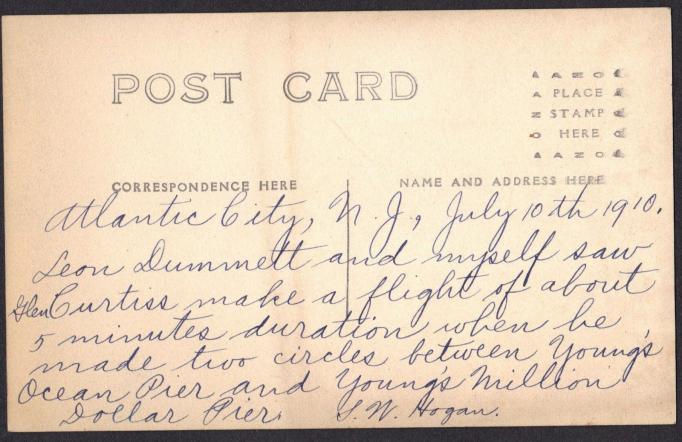 POST CARD
AZO
PLACE
STAMP
HERE
AZO
CORRESPONDENCE HERE
NAME AND ADDRESS HERE
Atlantic City, N. J., July 10th 1910.
Leon Dummett and myself saw
Glen Curtiss make a flight of about
5 minutes duration when he
made two circles between Young's
Ocean Pier and Young's Million
Dollar Pier. S. W. Hogan.